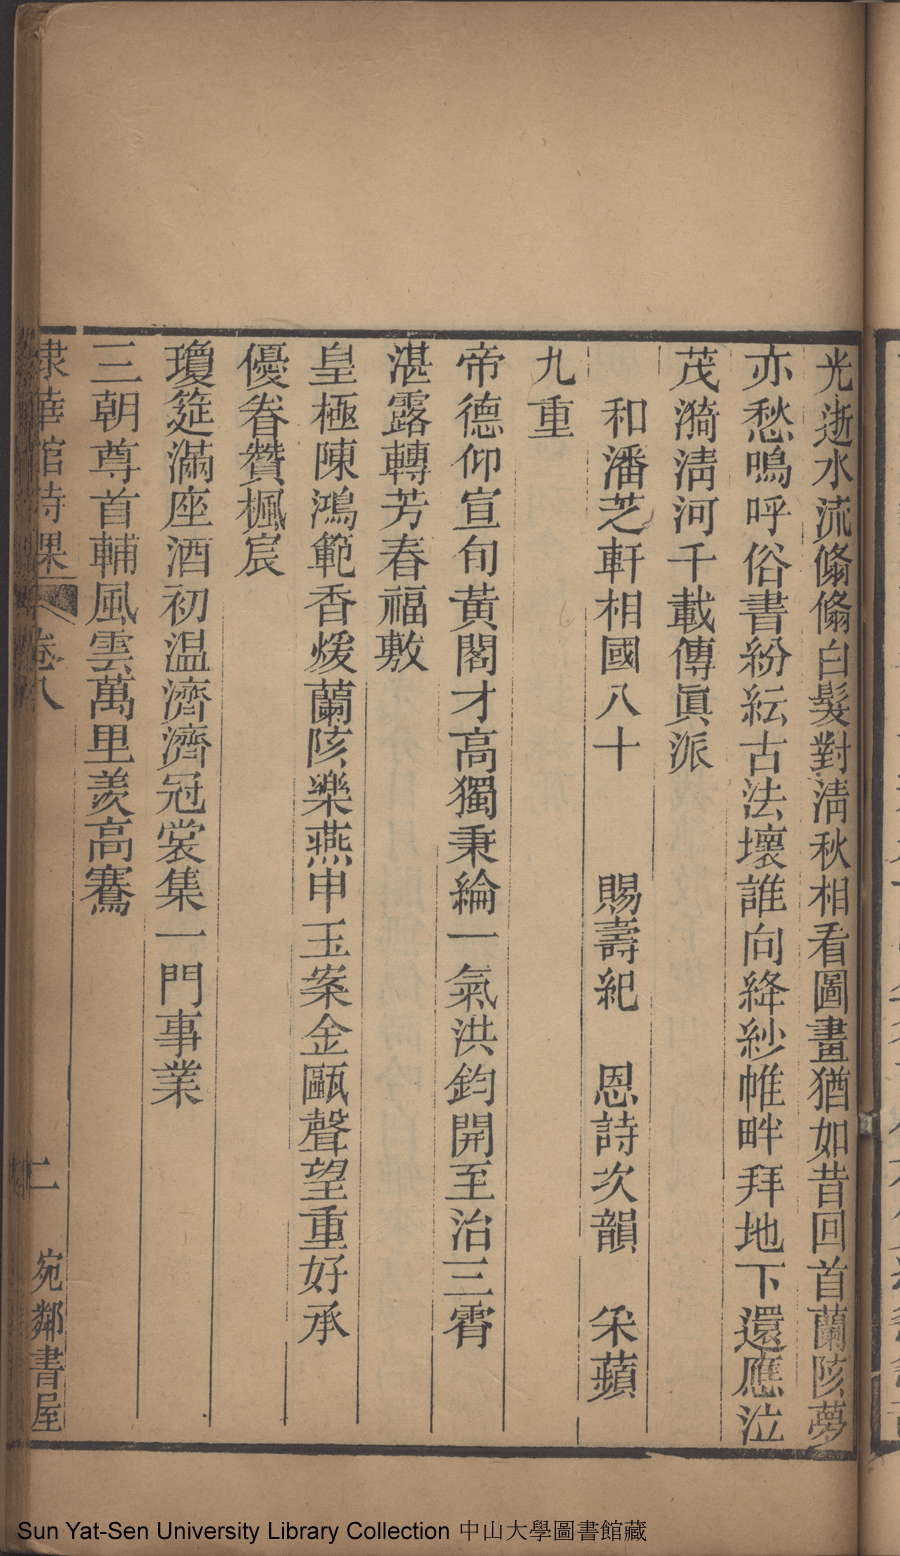 光逝水流翛翛白髮對淸秋相看圖畫猶如昔回首蘭陔夢
亦愁鳴呼俗書紛紜古法壞誰向絳紗帷畔拜地下還應泣
茂漪淸河千載傳眞派
和潘芝軒相國八十 賜壽紀 恩詩次韻 采蘋
九重
帝德仰宣句黃閣才高獨秉綸一氣洪鈞開至治三霄
湛露轉芳春福敷
皇極陳鴻範香煖蘭陔樂燕申玉案金甌聲望重好承
優眷贊楓宸
瓊筵滿座酒初温濟濟冠裳集一門事業
三朝尊首輔風雲萬里羨高騫
棣華館詩課 卷八 二 宛鄰書屋
Sun Yat-Sen University Library Collection 中山大學圖書館藏